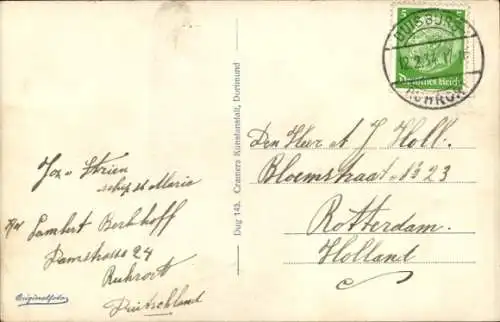 5
DUISBURG
RUHRORT
Deutsches Reich
Den Heer A J Holl.
Bloemstraat 123
Rotterdam.
Holland
Joz v Strien
schip St Marie
p/a/ Lambert Berkhoff
Damstrasse 24
Ruhrort
Duitschland
Originalfoto
Dug 143. Cramers Kunstanstalt, Dortmund